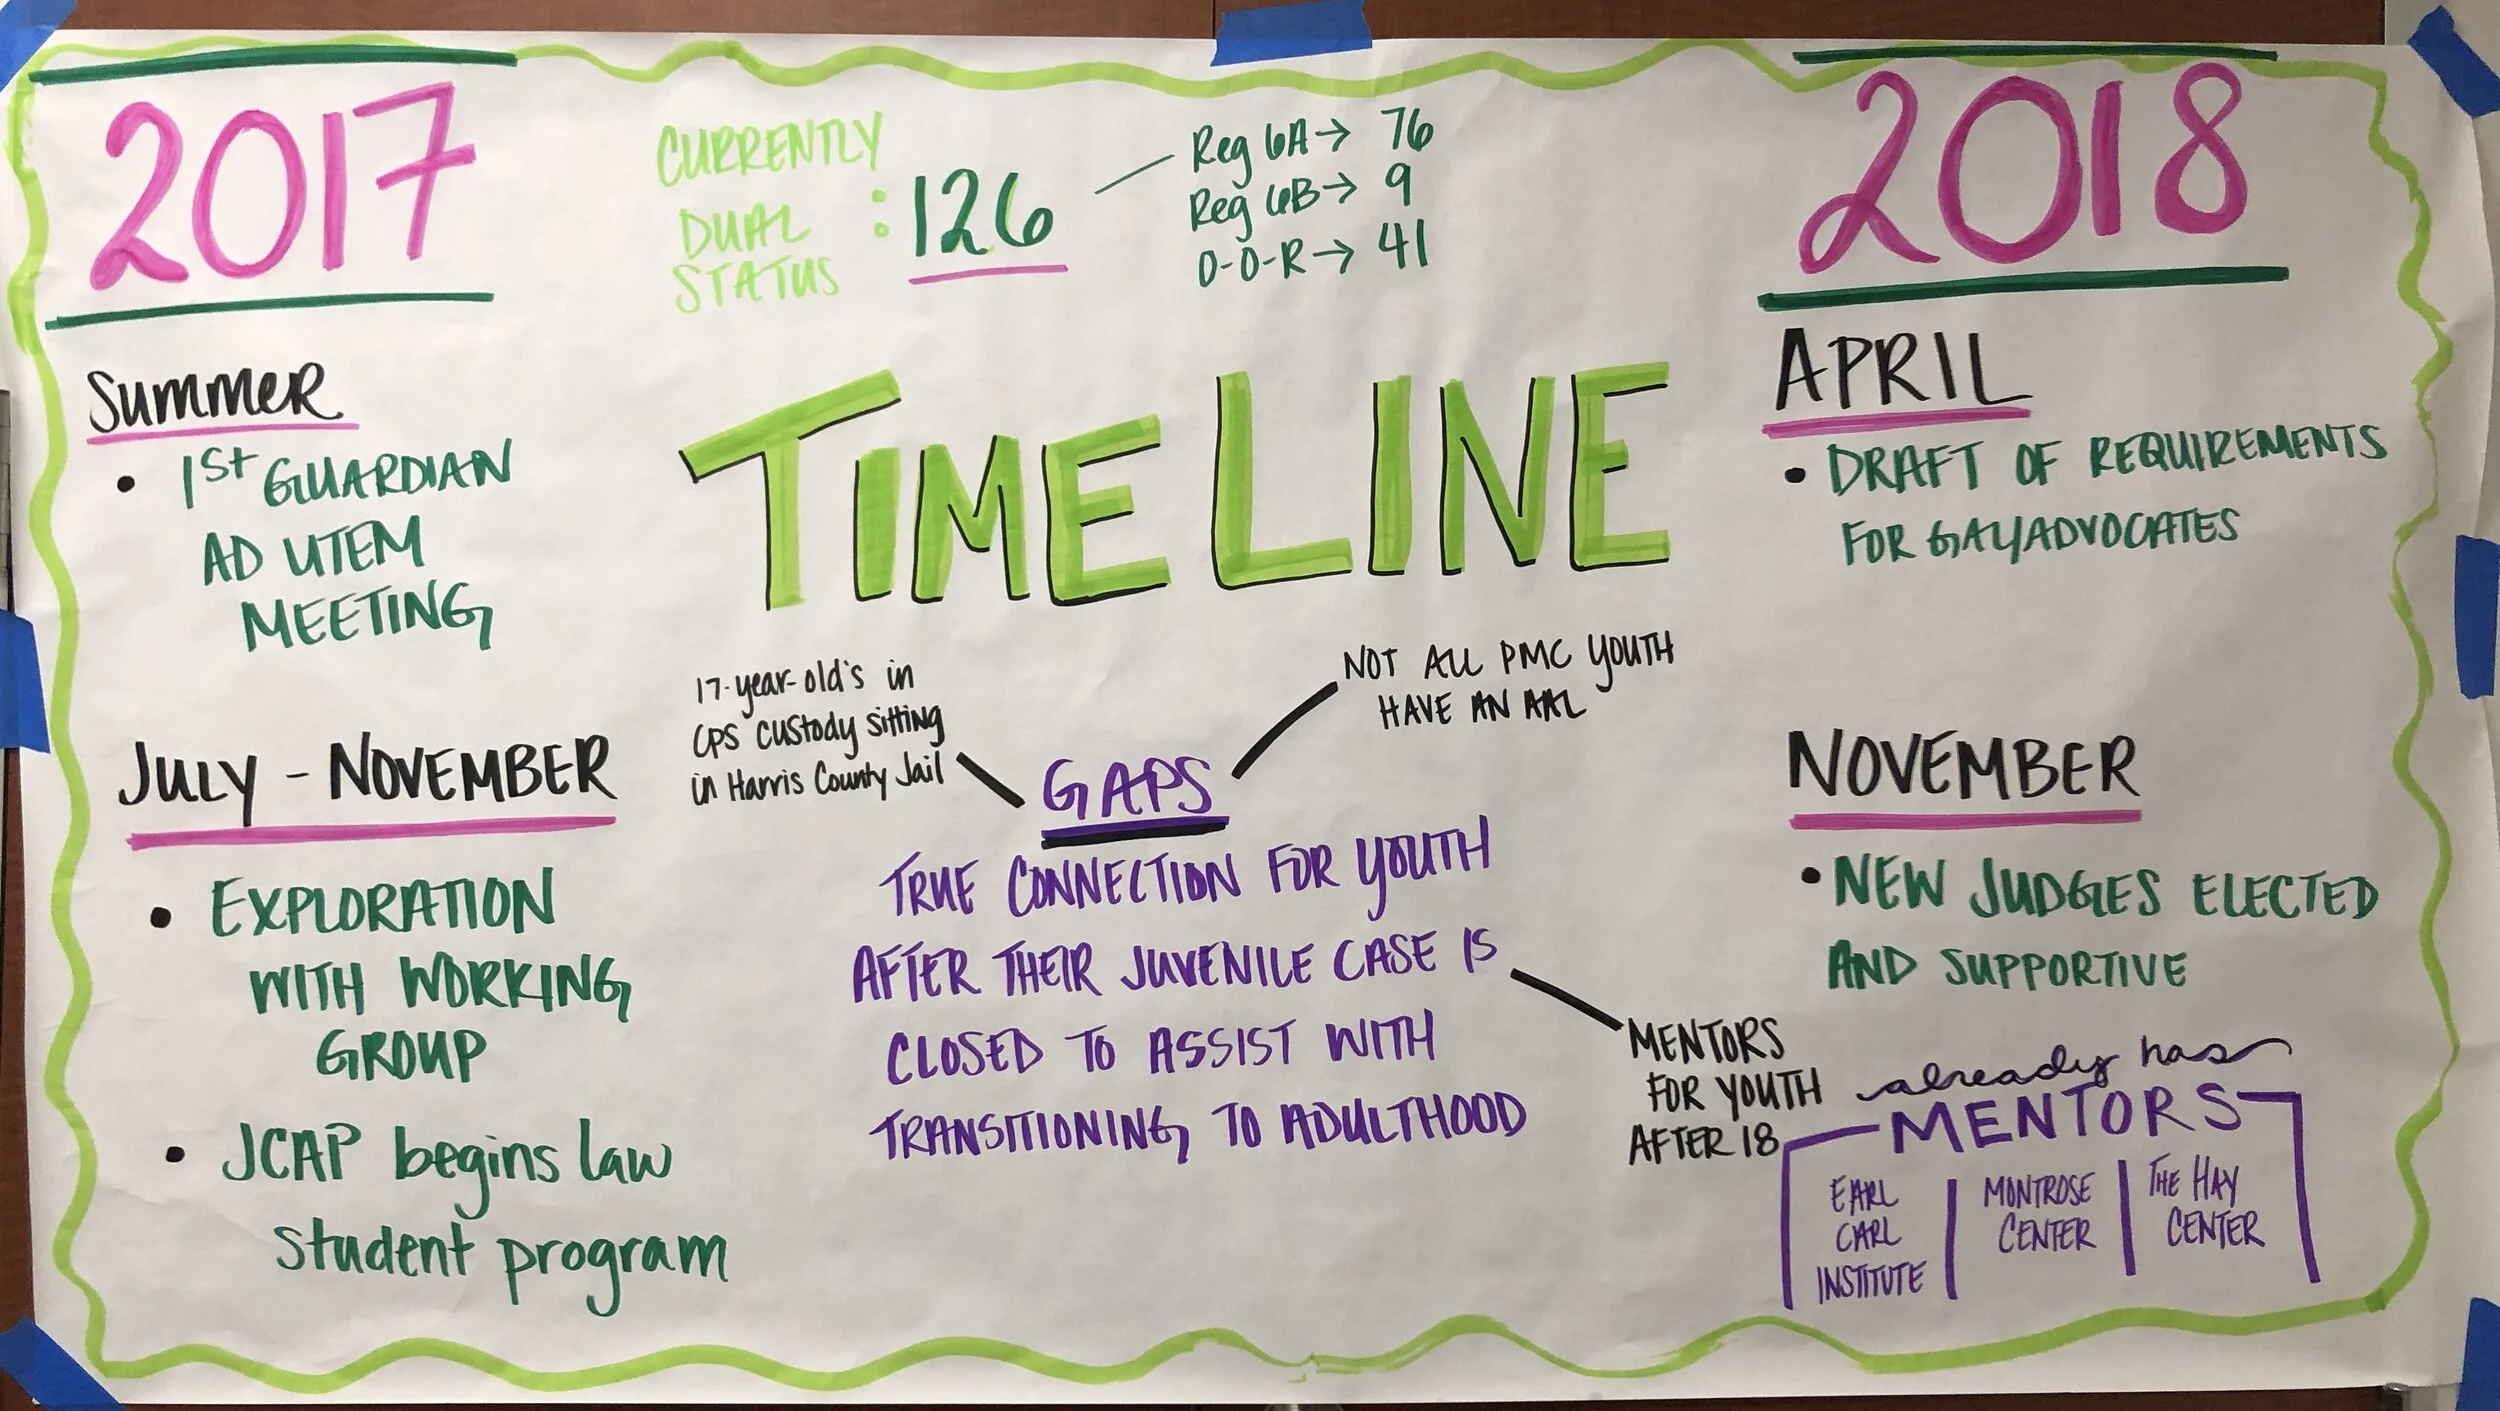 2017
Summer
• 1st GUARDIAN
AD UTEM
MEETING
JULY - NOVEMBER
• EXPLORATION
WITH WORKING
GROUP
• JCAP begins law
student program
CURRENTLY
DUAL : 126
STATUS
Reg 6A → 76
Reg 6B → 9
O-O-R → 41
TIMELINE
17-year-old's in
CPS custody sitting
in Harris County Jail
NOT ALL PMC YOUTH
HAVE AN AAL
GAPS
TRUE CONNECTION FOR YOUTH
AFTER THEIR JUVENILE CASE IS
CLOSED TO ASSIST WITH
TRANSITIONING TO ADULTHOOD
MENTORS
FOR YOUTH
AFTER 18
2018
APRIL
• DRAFT OF REQUIREMENTS
FOR GAL/ADVOCATES
NOVEMBER
• NEW JUDGES ELECTED
AND SUPPORTIVE
already has
MENTORS
EARL
CARL
INSTITUTE
MONTROSE
CENTER
THE HAY
CENTER